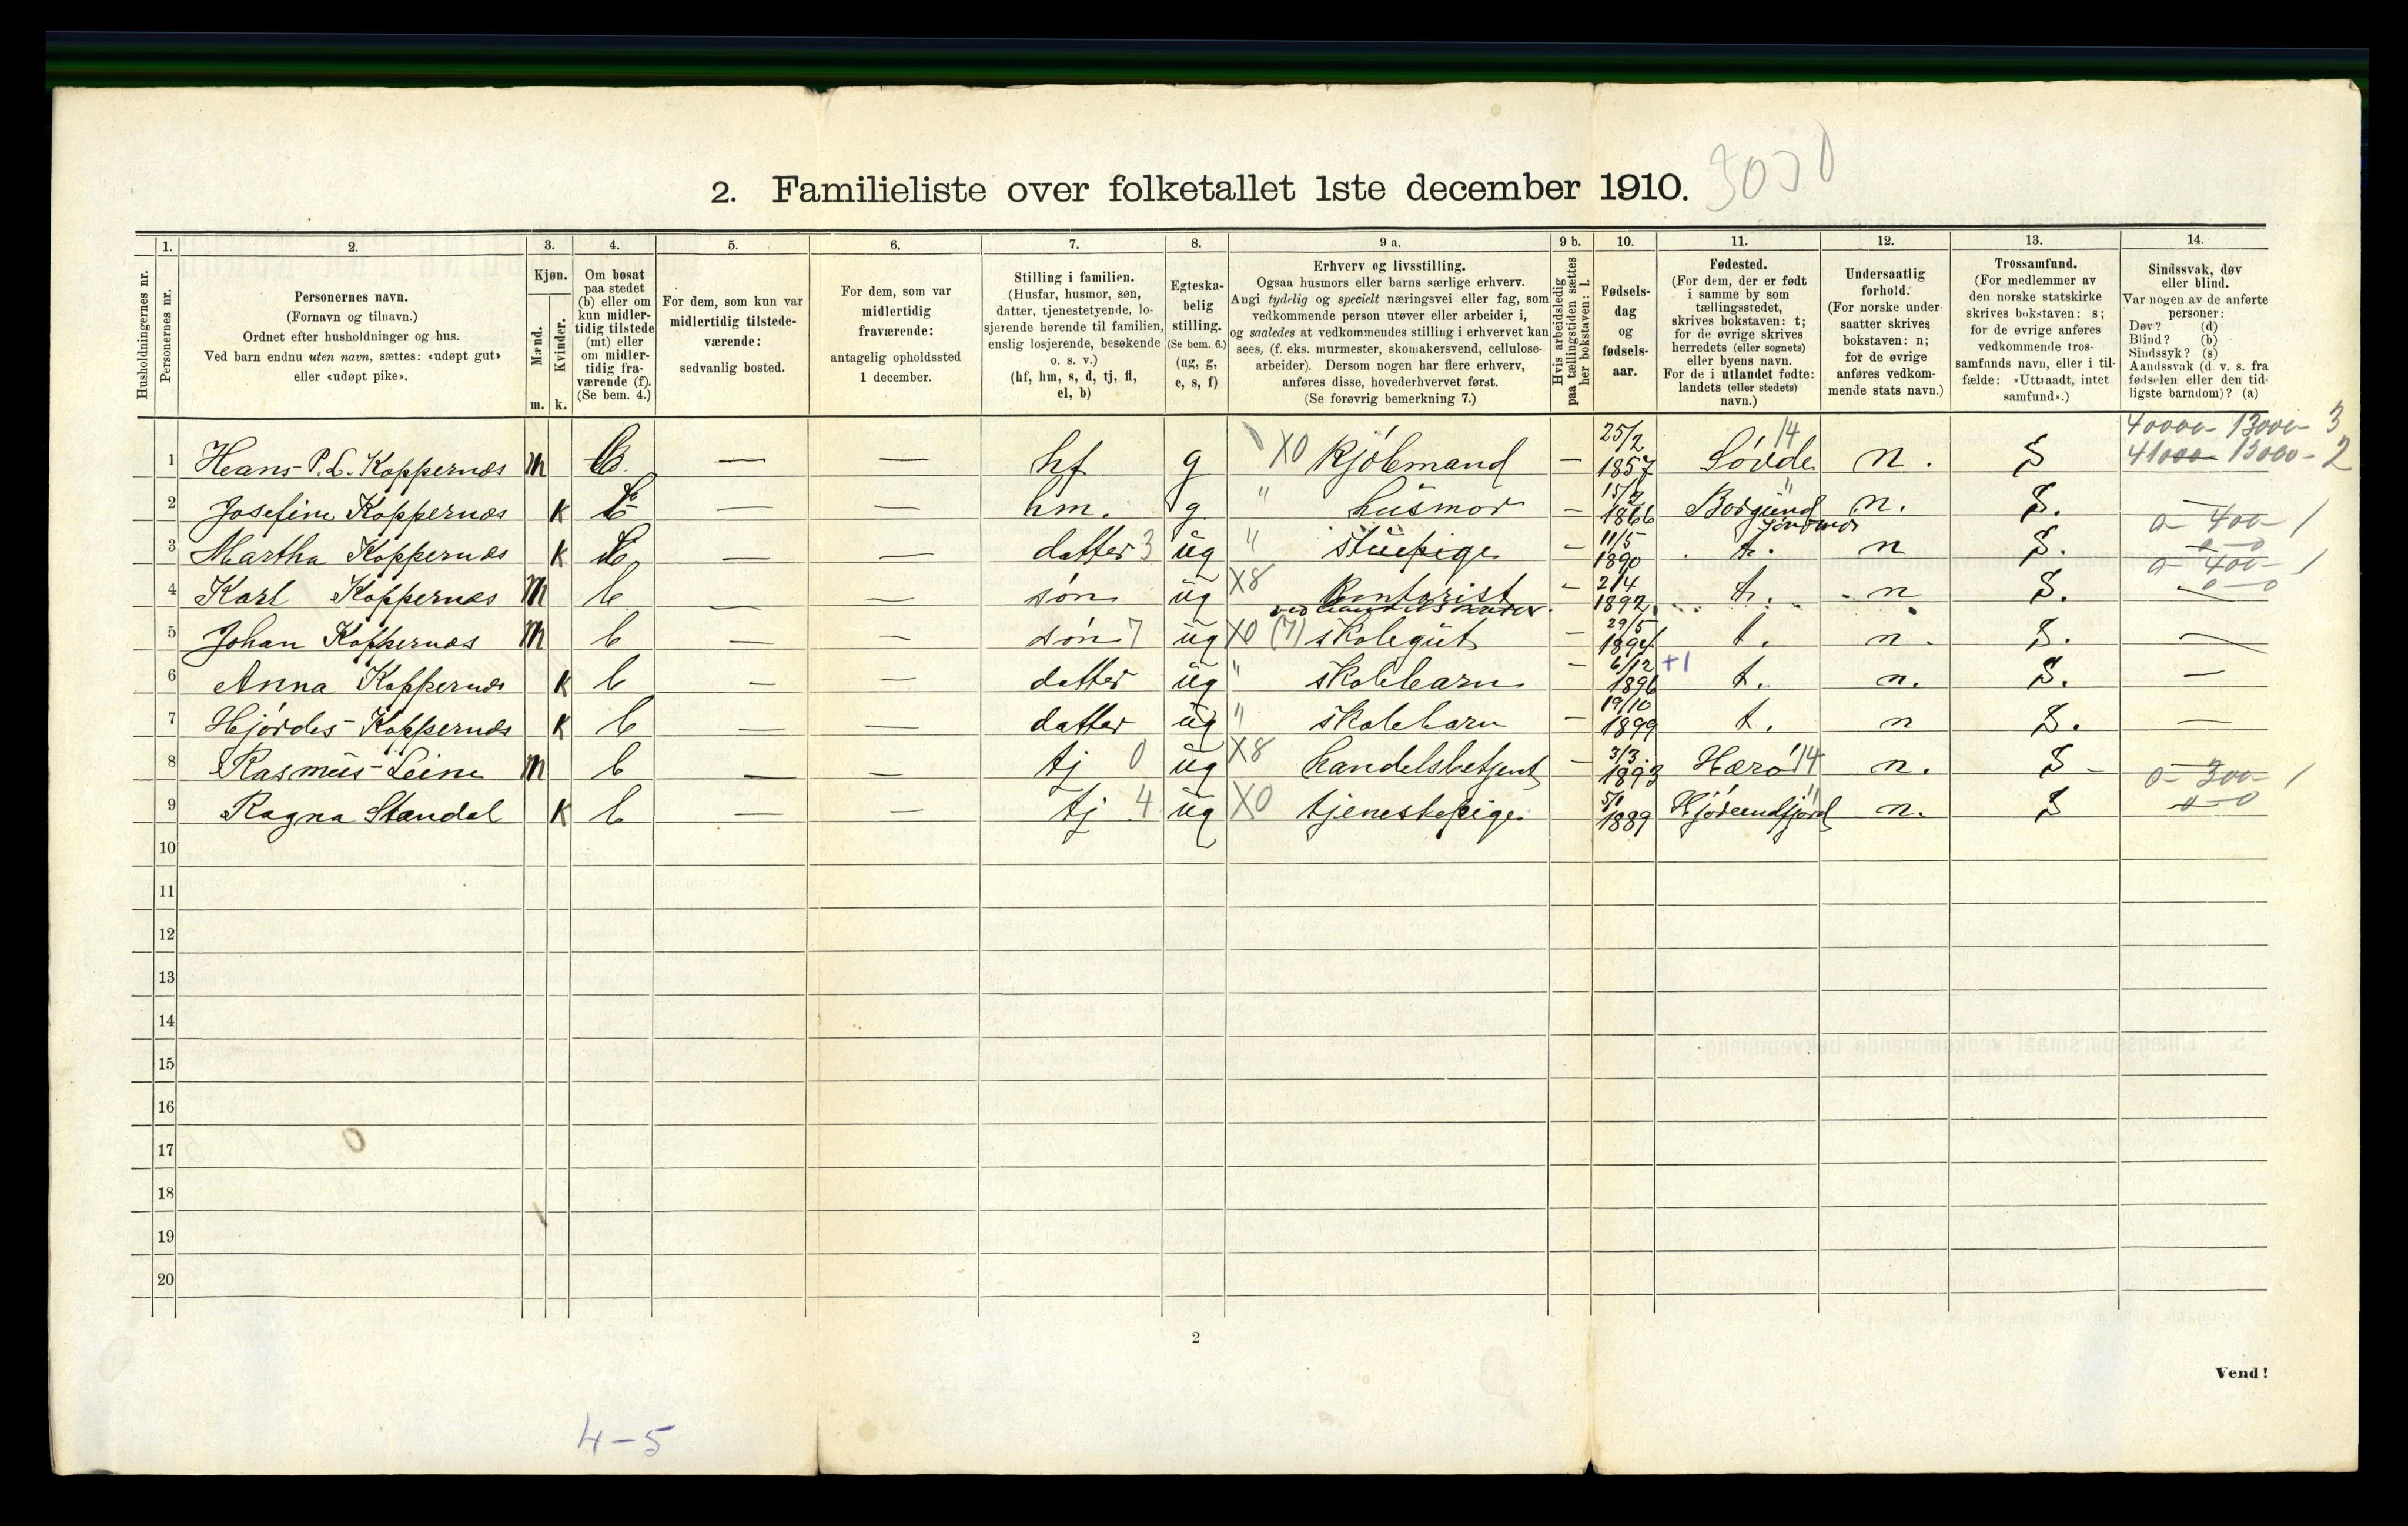 2. Familieliste over folketallet 1ste december 1910.
Husholdningernes nr.
1. Personernes nr.
2. Personernes navn.
(Fornavn og tilnavn.)
Ordnet efter husholdninger og hus.
Ved barn endnu uten navn, sættes: «udøpt gut»
eller «udøpt pike».
3. Kjøn.
Mænd. m.
Kvinder. k.
4. Om bosat
paa stedet
(b) eller om
kun midler-
tidig tilstede
(mt) eller
om midler-
tidig fra-
værende (f).
(Se bem. 4.)
5. For dem, som kun var
midlertidig tilstede-
værende:
sedvanlig bosted.
6. For dem, som var
midlertidig
fraværende:
antagelig opholdssted
1 december.
7. Stilling i familien.
(Husfar, husmor, søn,
datter, tjenestetyende, lo-
sjerende hørende til familien,
enslig losjerende, besøkende
o. s. v.)
(hf, hm, s, d, tj, fl,
el, b)
8. Egteska-
belig
stilling.
(Se bem. 6.)
(ug, g,
e, s, f)
9 a. Erhverv og livsstilling.
Ogsaa husmors eller barns særlige erhverv.
Angi tydelig og specielt næringsvei eller fag, som
vedkommende person utøver eller arbeider i,
og saaledes at vedkommendes stilling i erhvervet kan
sees, (f. eks. murmester, skomakersvend, cellulose-
arbeider). Dersom nogen har flere erhverv,
anføres disse, hovederhvervet først.
(Se forøvrig bemerkning 7.)
9 b. Hvis arbeidsledig
paa tællingstiden sættes
her bokstaven: l.
10. Fødsels-
dag
og
fødsels-
aar.
11. Fødested.
(For dem, der er født
i samme by som
tællingsstedet,
skrives bokstaven: t;
for de øvrige skrives
herredets (eller sognets)
eller byens navn.
For de i utlandet fødte:
landets (eller stedets)
navn.)
12. Undersaatlig
forhold.
(For norske under-
saatter skrives
bokstaven: n;
for de øvrige
anføres vedkom-
mende stats navn.)
13. Trossamfund.
(For medlemmer av
den norske statskirke
skrives bokstaven: s;
for de øvrige anføres
vedkommende tros-
samfunds navn, eller i til-
fælde: «Uttraadt, intet
samfund».)
14. Sindssvak, døv
eller blind.
Var nogen av de anførte
personer:
Døv? (d)
Blind? (b)
Sindssyk? (s)
Aandssvak (d. v. s. fra
fødselen eller den tid-
ligste barndom)? (a)
1 Hans P. L. Koppernæs m b — — hf g X0 Kjöbmand — 25/2 1857 Sövde 14 n. S
2 Josefine Koppernæs K b — — hm. g " husmor — 1866 Borgund Söndmör n. S. —
3 Martha Koppernæs K b — — datter 3 ug " stuepige - 11/5 1890 t. n S. 0- 400- 1
4 Karl Koppernæs m b — — søn ug X8 Kontorist - 2/4 1892 t. n S. 0- 400- 1
5 Johan Koppernæs m b — — søn 7 ug X0 (7) skolegut — 29/5 1894 t. n. S. —
6 Anna Koppernæs K b — — datter ug " skolebarn — 6/12 1896 +1 t. n. S. —
7 Hjördes Koppernæs K b — — datter ug " skolebarn — 19/10 1899 t. n S. —
8 Rasmus Leine m b — — tj 0 ug X8 handelsbetjent — 3/3 1893 Herö 14 n. S - 0- 300- 1
9 Ragna Standal K b — — tj 4 ug X0 tjenestepige 5/1 1889 Hjörundfjord n. S 0-0
10
11
12
13
14
15
16
17
18
19
20
2
Vend!
4-5